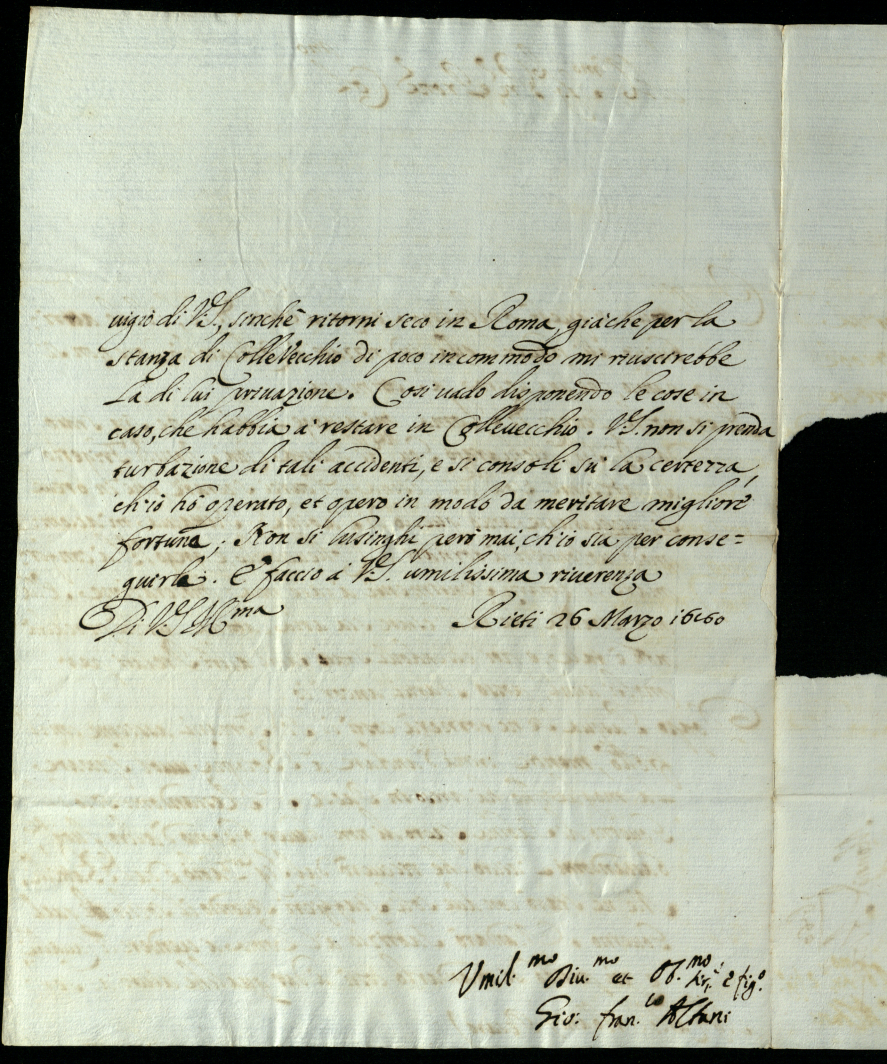 uigio di V.S., sinchè ritorni seco in Roma, giàche per la
stanza di Collevecchio di poco incommodo mi riuscirebbe
La di lui priuazione. Così uado disponendo le cose in
caso, che habbia à restare in Colleuecchio. V.S. non si prenda
turbazione di tali accidenti, e si consoli su la certezza,
ch'io hò operato, et opero in modo da meritare migliore
fortuna; Non si lusinghi però mai, ch'io sia per conse=
guirla. E faccio à V.S. umilissima riuerenza
Di V.S. Ill.ma Rieti 26 Marzo 1660
Vmil.mo Diu.mo et Ob.mo e fig.o
Gio: fran.co Albani